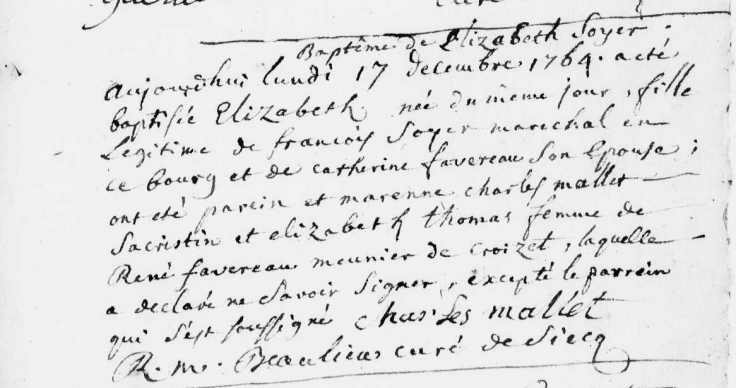 Baptême de Elizabeth Soyer;
aujourd'hui lundi 17 decembre 1764. a eté
baptisée Elizabeth née du même jour, fille
Legitime de francois Soyer marechal en
ce bourg et de catherine favereau son Epouse;
ont eté parein et marenne charles mallet
Sacristin et elizabeth thomas femme de
René favereau meunier de Croizet, laquelle
a declaré ne Savoir Signer, excepté le parrein
qui s'est soussigné charles mallet
R. m. Beaulieu curé de Siecq